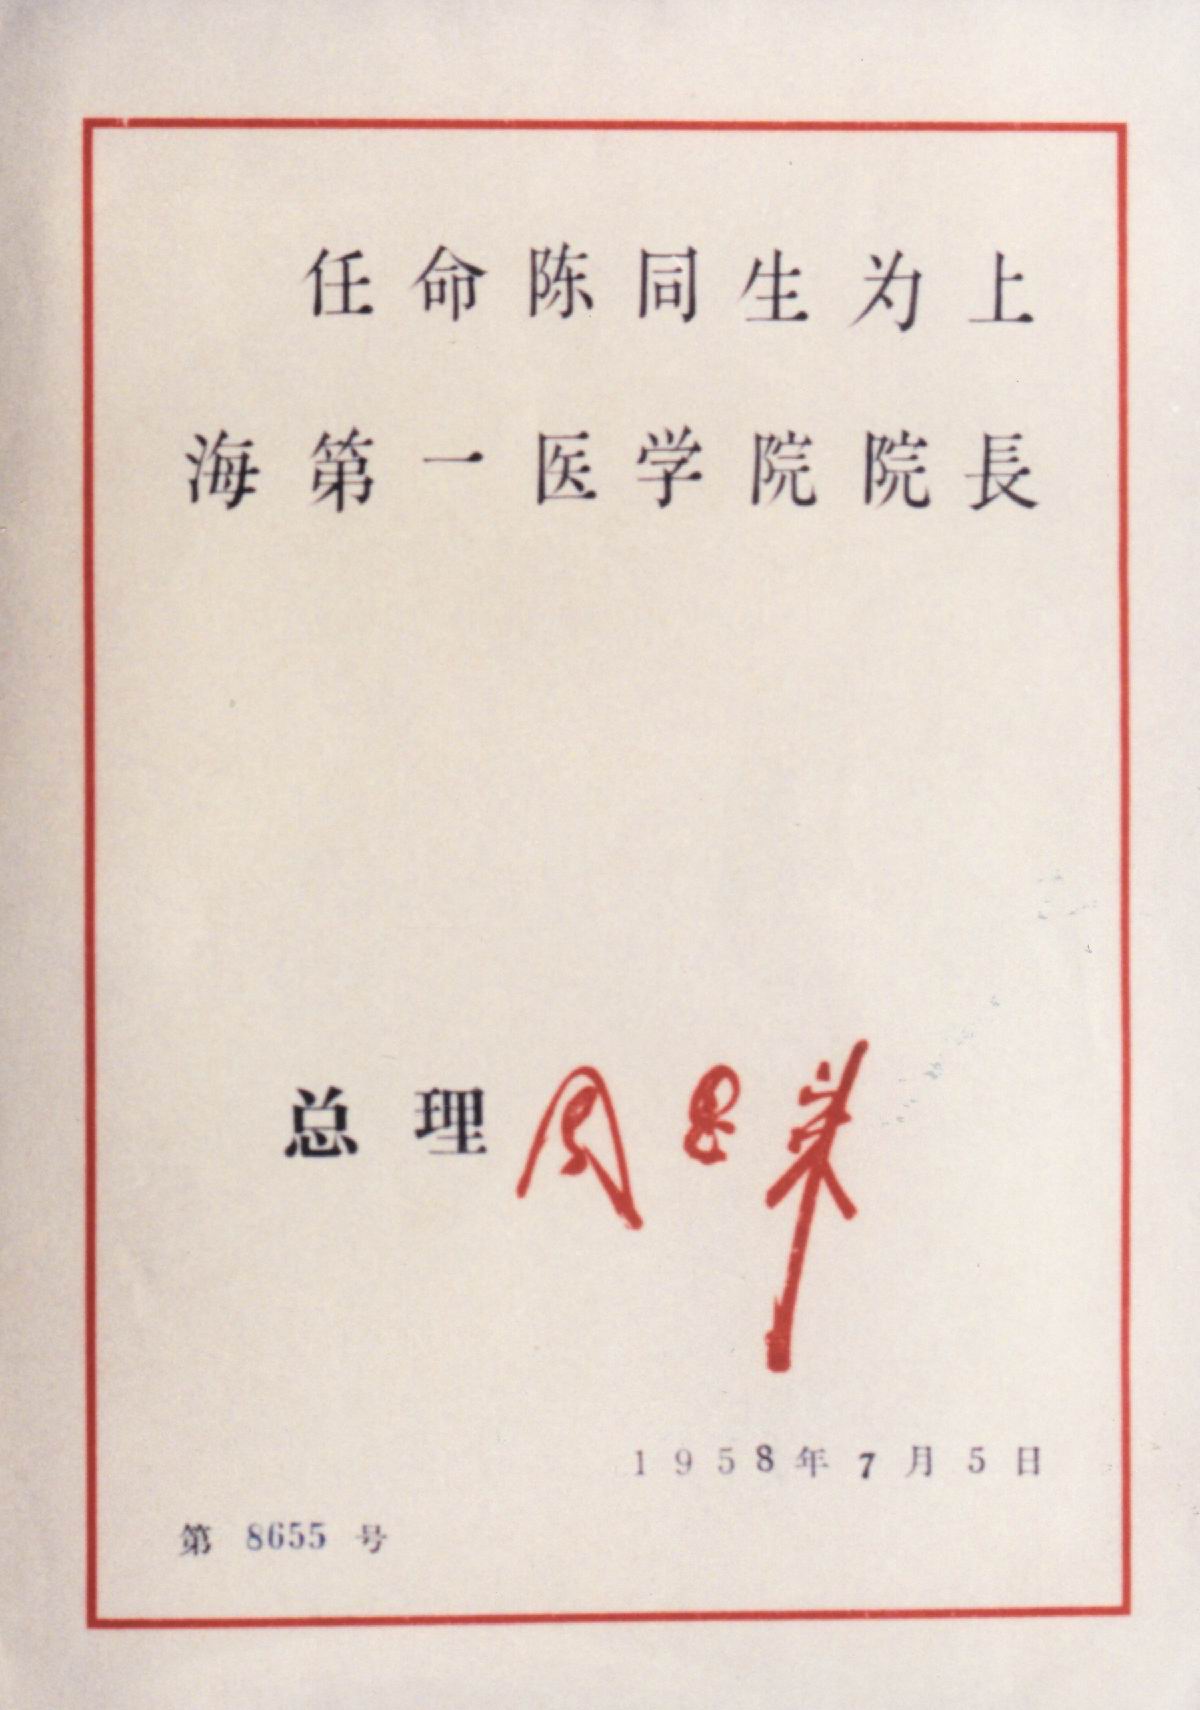 任命陈同生为上
海第一医学院院長
总理 周恩来
1958年7月5日
第 8655 号